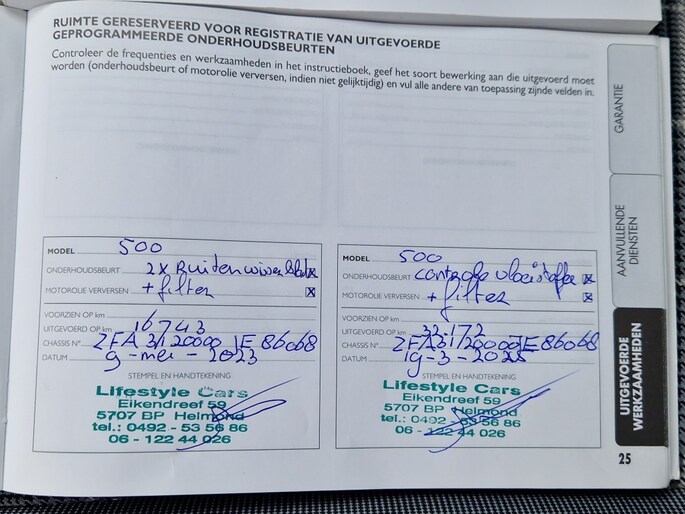 RUIMTE GERESERVEERD VOOR REGISTRATIE VAN UITGEVOERDE
GEPROGRAMMEERDE ONDERHOUDSBEURTEN
Controleer de frequenties en werkzaamheden in het instructieboek, geef het soort bewerking aan die uitgevoerd moet
worden (onderhoudsbeurt of motorolie verversen, indien niet gelijktijdig) en vul alle andere van toepassing zijnde velden in.
GARANTIE
AANVULLENDE
DIENSTEN
UITGEVOERDE
WERKZAAMHEDEN
MODEL 500
ONDERHOUDSBEURT 2x Ruitenwisser
MOTOROLIE VERVERSEN + filter
VOORZIEN OP km
UITGEVOERD OP km 16743
CHASSIS N° ZFA3120000JE86068
DATUM 9-mei-2023
STEMPEL EN HANDTEKENING
Lifestyle Cars
Eikendreef 59
5707 BP Helmond
tel.: 0492 - 53 56 86
06 - 122 44 026
MODEL 500
ONDERHOUDSBEURT controle vloeistoffen
MOTOROLIE VERVERSEN + filter
VOORZIEN OP km
UITGEVOERD OP km 32.172
CHASSIS N° ZFA3120000JE86068
DATUM 19-3-2025
STEMPEL EN HANDTEKENING
Lifestyle Cars
Eikendreef 59
5707 BP Helmond
tel.: 0492 - 53 56 86
06 - 122 44 026
25